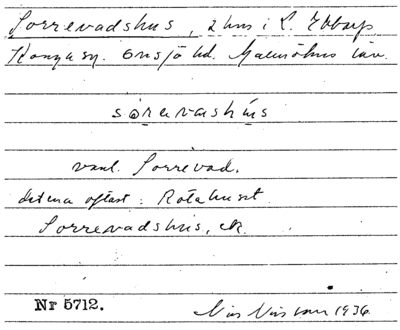 Sorrevadshus, 2 hus i L. Ebbarp
Konga sn. Onsjö hd. Malmöhus län.
sörevashús
vanl. Sorrevad.
detena oftast: Rotahuset
Sorrevadshus, ck
Nr 5712.
Nils Nilsson 1936.